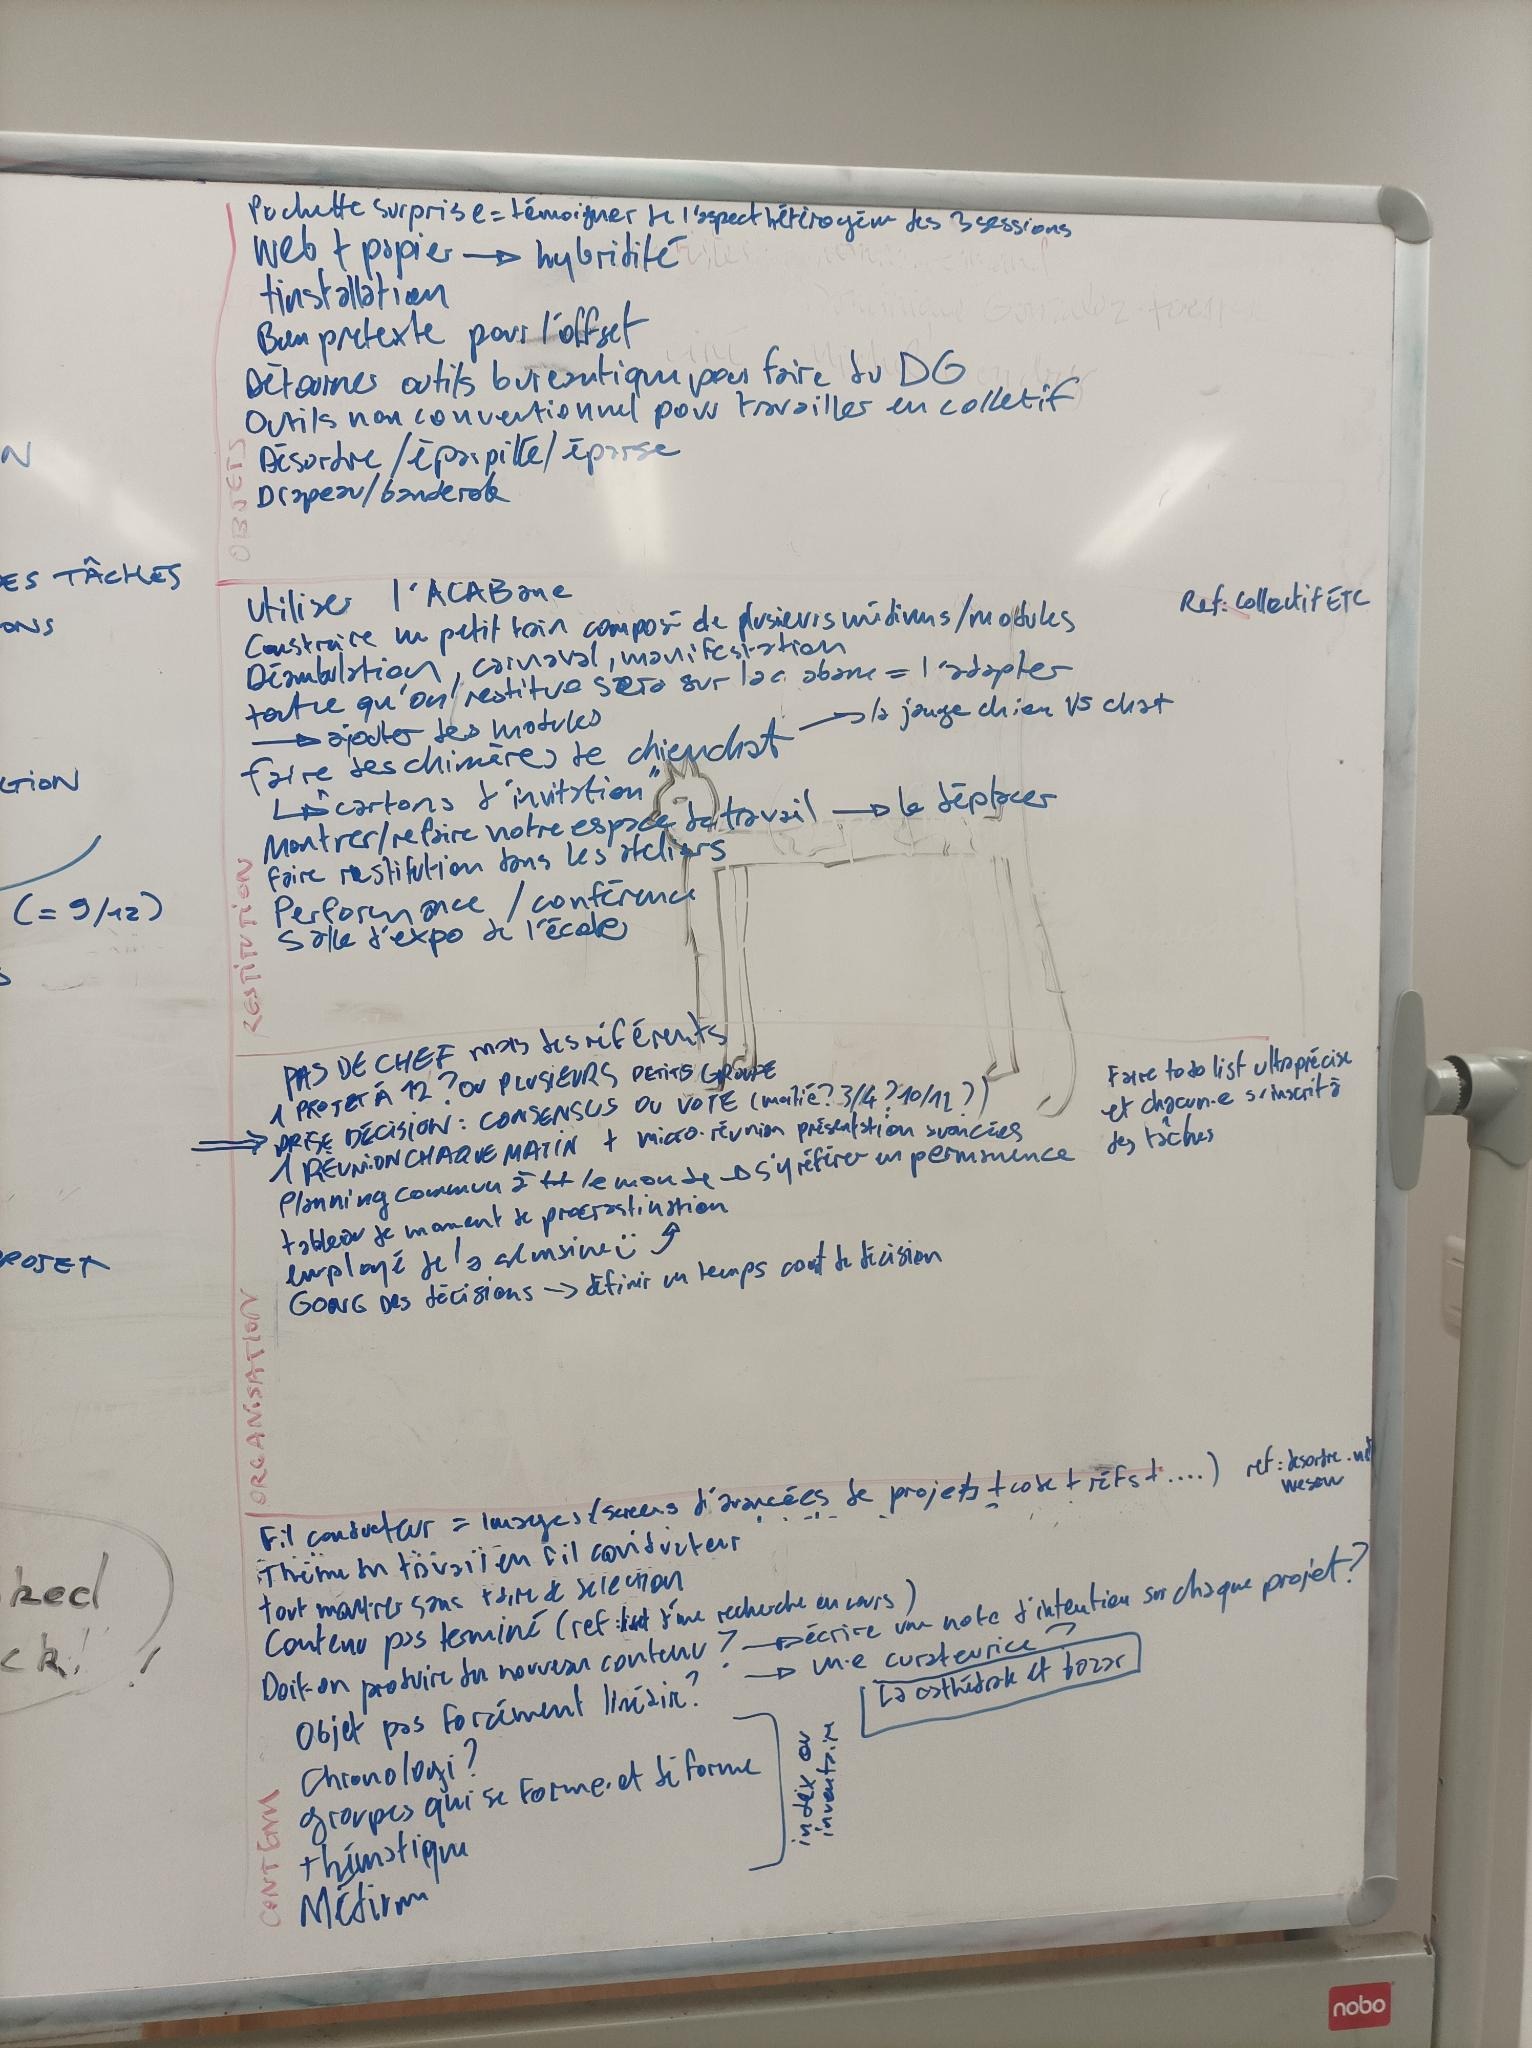 N
ES TÂCHES
ONS
CTION
(= 9/12)
S
ROJET
ked
ck!
!
OBJETS
Pochette surprise = témoigner de l'aspect hétérogène des 3 sessions
Web + papier → hybridité
+ installation
Bon prétexte pour l'offset
Détourner outils bureautique pour faire du DG
Outils non conventionnel pour travailler en collectif
Désordre / éparpillé / éparse
Drapeau / banderole
RESTITUTION
Utiliser l'ACABane
Ref: Collectif ETC
Construire un petit train composé de plusieurs médiums / modules
Déambulation, carnaval, manifestation
tout ce qu'on restitue sera sur la cabane = l'adapter
→ ajouter des modules
Faire des chimères de chienchat → la jauge chien VS chat
↳ cartons d'invitation
Montrer/refaire notre espace de travail → le déplacer
Faire restitution dans les ateliers
Performance / conférence
Salle d'expo de l'école
ORGANISATION
PAS DE CHEF mais des référents
1 PROJET À 12 ? OU PLUSIEURS PETITS GROUPE
⇒ PRISE DÉCISION : CONSENSUS OU VOTE (moitié ? 3/4 ? 10/12 ?)
1 RÉUNION CHAQUE MATIN + micro-réunion présentation avancées
Planning commun à tt le monde → s'y référer en permanence
tableau de moment de procrastination
employé de la semaine
GONG DES décisions → définir un temps court de décision
Faire todo list ultra précise
et chacun·e s'inscrit à
des tâches
CONTENU
Fil conducteur = images (screens d'avancées de projets + code + réfs + ....)
ref : desordre.net
Thème du travail en fil conducteur
tout montrer sans faire de sélection
Contenu pas terminé (ref : d'une recherche en cours)
Doit-on produire du nouveau contenu ? → écrire une note d'intention sur chaque projet ?
→ un·e curateurice ?
La cathédrale et bazar
Objet pas forcément linéaire ?
Chronologi ?
groupes qui se forme et déforme
thématique
Médium
index ou
inventaire
nobo